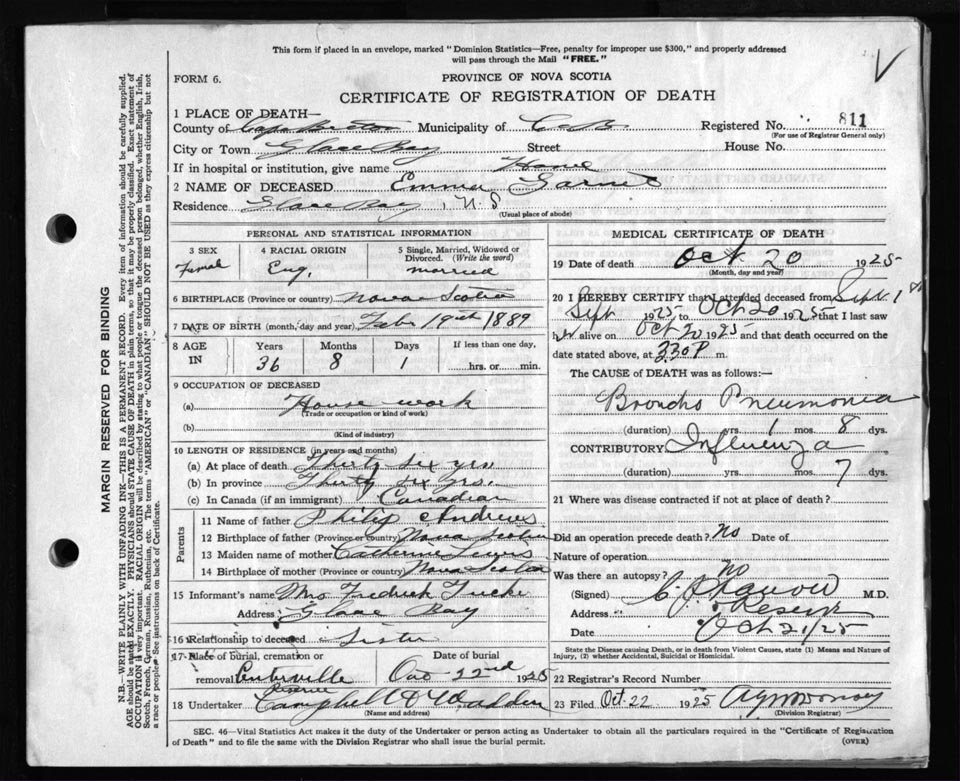 This form if placed in an envelope, marked "Dominion Statistics—Free, penalty for improper use $300," and properly addressed
will pass through the Mail "FREE."
FORM 6.
PROVINCE OF NOVA SCOTIA
CERTIFICATE OF REGISTRATION OF DEATH
1 PLACE OF DEATH—
County of Cape Breton Municipality of C.B. Registered No. 811
(For use of Registrar General only)
City or Town Glace Bay Street House No.
If in hospital or institution, give name Home
2 NAME OF DECEASED Emma
Residence Glace Bay, N.S
(Usual place of abode)
PERSONAL AND STATISTICAL INFORMATION
3 SEX
Femal
4 RACIAL ORIGIN
Eng.
5 Single, Married, Widowed or
Divorced. (Write the word)
married
6 BIRTHPLACE (Province or country) Novae Scotia
7 DATE OF BIRTH (month, day and year) 1889
8 AGE
IN
Years Months Days If less than one day,
36 8 1 hrs. or min.
9 OCCUPATION OF DECEASED
(a) House work
(Trade or occupation or kind of work)
(b)
(Kind of industry)
10 LENGTH OF RESIDENCE (in years and months)
(a) At place of death Thirty Six yrs
(b) In province Thirty Six Yrs.
(c) In Canada (if an immigrant) Canadian
Parents
11 Name of father Philip Andrews
12 Birthplace of father (Province or country) Nova Scotia
13 Maiden name of mother Catherine
14 Birthplace of mother (Province or country) Nova Scotia
15 Informant's name Mrs Fredrick
Address Glace Bay
16 Relationship to deceased Sister
17 Place of burial, cremation or Date of burial
removal 22nd 1925
18 Undertaker Campbell
(Name and address)
MEDICAL CERTIFICATE OF DEATH
19 Date of death Oct 20 1925
(Month, day and year)
20 I HEREBY CERTIFY that I attended deceased from Sept 1st
Sept 1925 to Oct 20 1925 that I last saw
her alive on Oct 20 1925 and that death occurred on the
date stated above, at 330 P m.
The CAUSE of DEATH was as follows:—
Broncho Pneumonia
(duration) yrs. 1 mos. 8 dys.
CONTRIBUTORY Influenza
(duration) yrs. mos. 7 dys.
21 Where was disease contracted if not at place of death?
Did an operation precede death? No
Nature of operation
Was there an autopsy? no
(Signed) M.D.
Address Reserve
Date Oct 21/25
State the Disease causing Death, or in death from Violent Causes, state (1) Means and Nature of
Injury, (2) whether Accidental, Suicidal or Homicidal.
22 Registrar's Record Number
23 Filed Oct. 22 1925
(Division Registrar)
SEC. 46—Vital Statistics Act makes it the duty of the Undertaker or person acting as Undertaker to obtain all the particulars required in the "Certificate of Registration
of Death" and to file the same with the Division Registrar who shall issue the burial permit.
(OVER)
MARGIN RESERVED FOR BINDING
N.B.—WRITE PLAINLY WITH UNFADING INK—THIS IS A PERMANENT RECORD. Every item of information should be carefully supplied.
AGE should be stated EXACTLY. PHYSICIANS should STATE CAUSE OF DEATH in plain terms, so that it may be properly classified. Exact statement of
OCCUPATION is very important. RACIAL ORIGIN will be described by stating to what people or tongue the deceased person belonged, whether English, Irish,
Scotch, French, German, Russian, Ruthenian, etc. The terms "AMERICAN" or "CANADIAN" SHOULD NOT BE USED as they express citizenship but not
a race or people. See instructions on back of Certificate.